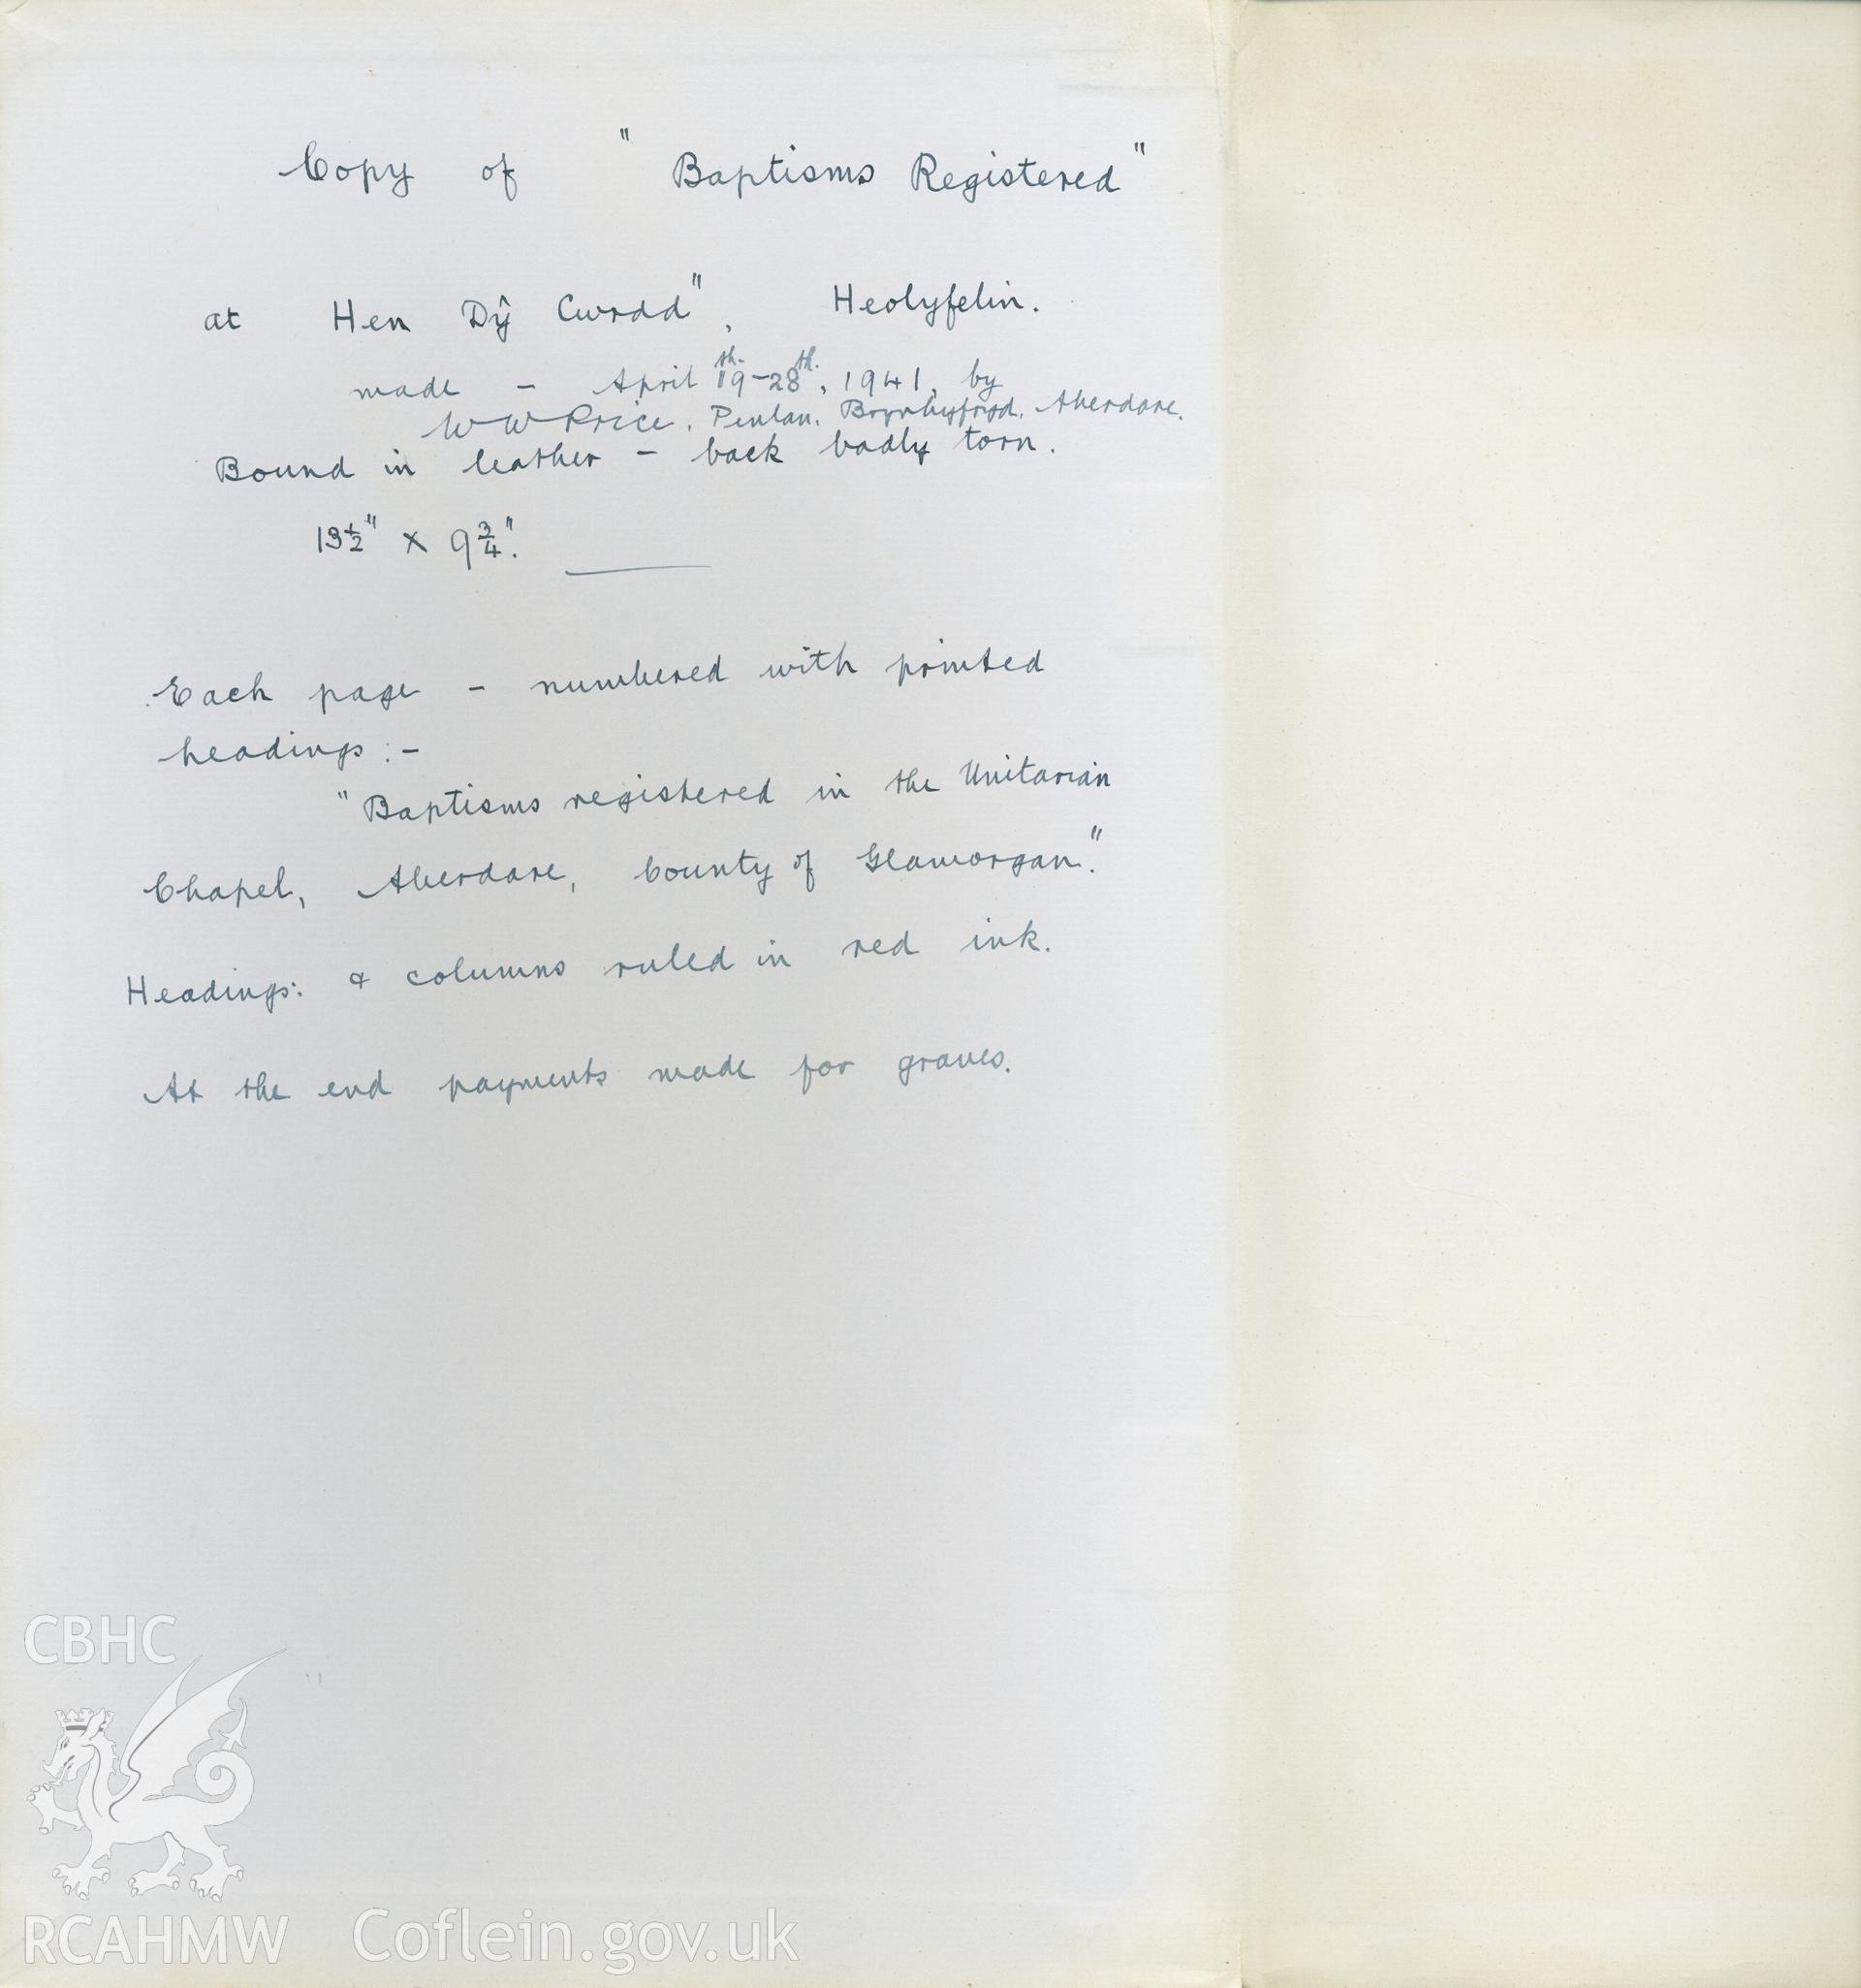 Copy of " Baptisms Registered"
at Hen Dŷ Cwrdd", Heolyfelin.
made - April 19th-28th, 1941, by
W W Price. Penlan. Brynhyfryd. Aberdare.
Bound in leather - back badly torn.
13½" x 9¾".
Each page - numbered with printed
headings:-
"Baptisms registered in the Unitarian
Chapel, Aberdare, County of Glamorgan."
Headings: & columns ruled in red ink.
At the end payments made for graves.
CBHC
RCAHMW Coflein.gov.uk